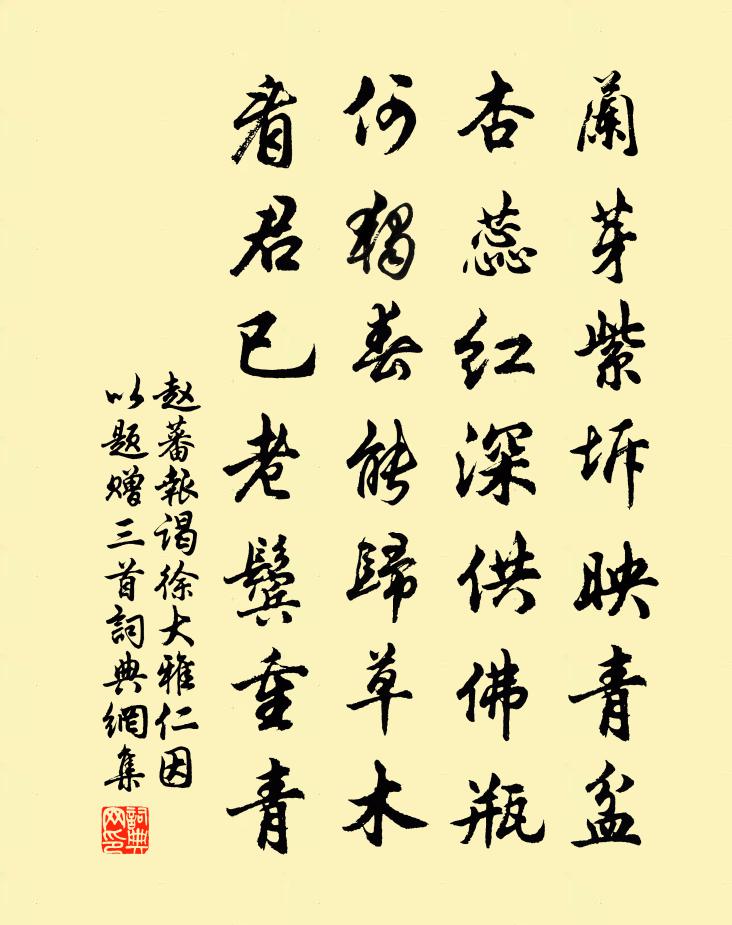 蘭芽紫坼映青盆
杏蕊紅深供佛瓶
何獨春能歸草木
看君已老鬢重青
赵蕃報謁徐大雅仁因
以题赠三首詞典網集
詞典網印